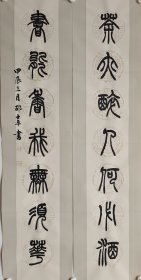 茶亦醉人何必酒
書能香我無須花
甲辰三月
書